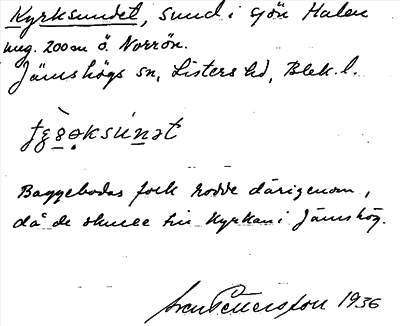 Kyrksundet, sund i sjön Halen
ung. 200 m ö. Norrön.
Jämshögs sn, Listers hd, Blek. l.
Baggebodas folk rodde därigenom,
då de skulle till kyrkan i Jämshög.
Sven Pettersson 1936